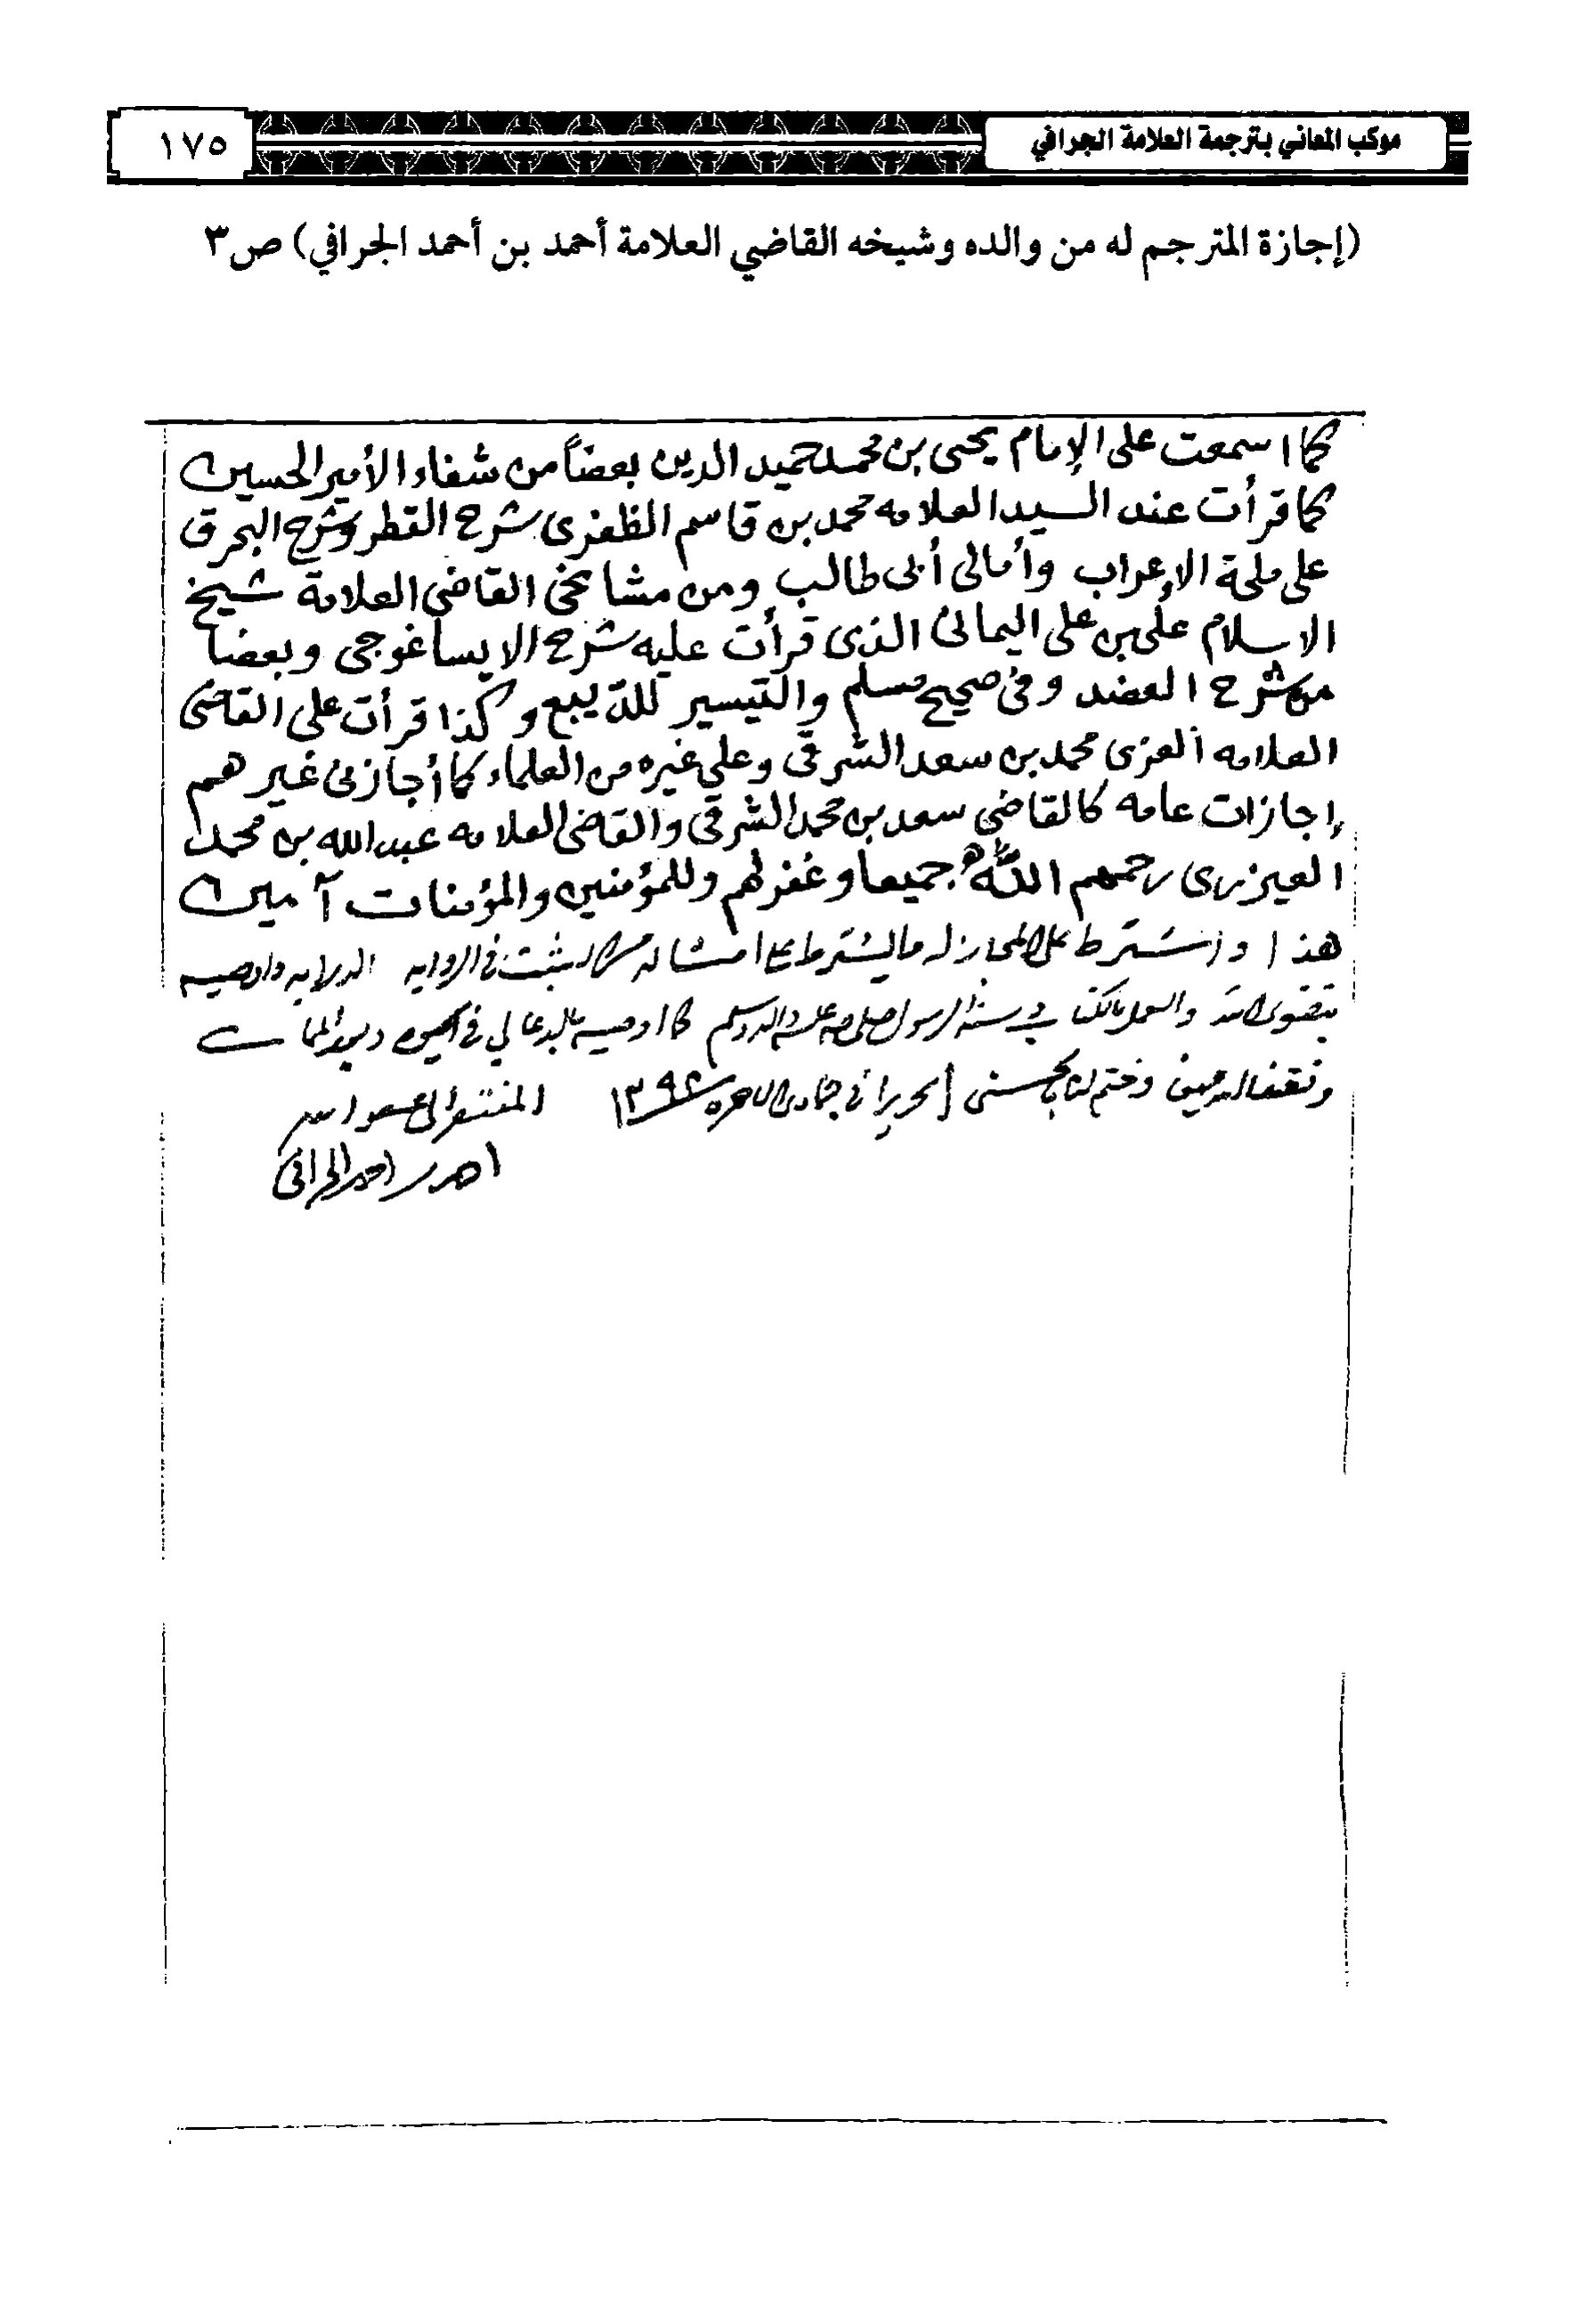 موكب المعاني بترجمة العلامة الجرافي
١٧٥
(إجازة المترجم له من والده وشيخه القاضي العلامة أحمد بن أحمد الجرافي) ص٣
كما اسمعت على الإمام يحيى بن محمد حميد الدين بعضاً من شفاء الأمير الحسين
كما قرأت عند السيد العلامه محمد بن قاسم الظفرى شرح القطر وشرح البحرق
على ملحة الإعراب وأمالى أبى طالب ومن مشائخى القاضى العلامة شيخ
الاسلام على بن على اليمانى الذى قرأت عليه شرح الايساغوجى وبعضا
من شرح العضد وفى صحيح مسلم والتيسير للديبع وكذا قرأت على القاضى
العلامه العزى محمد بن سعد الشرقى وعلى غيره من العلماء كما أجازنى غيرهم
إجازات عامه كالقاضى سعد بن محمد الشرقى والقاضى العلامه عبدالله بن محمد
العيزرى رحمهم الله جميعا وغفر لهم وللمؤمنين والمؤمنات آمين
هذا واشترط على المجاز له ما يشترط على امثاله من التثبت في الروايه واوصيه
بتقوى الله والعمل بالكتاب وسنة الرسول صلى الله عليه واله وسلم كما اوصيه بالدعا لي في الحيوه وبعد الممات
وختم لنا بالحسنى تحريرا في جمادى الاخره ١٣٩٤ المفتقر الى عفو الله
احمد بن احمد الجرافى